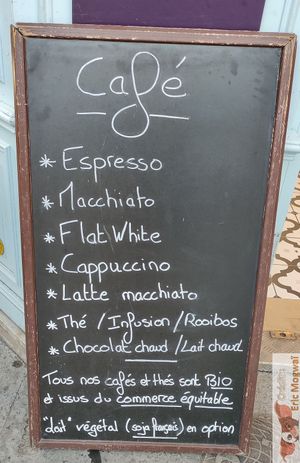 Café
* Espresso
* Macchiato
* Flat White
* Cappuccino
* Latte macchiato
* Thé / Infusion / Rooibos
* Chocolat chaud / Lait chaud
Tous nos cafés et thés sont BIO
et issus du commerce équitable
"lait" végétal (soja français) en option
Eric Magwell